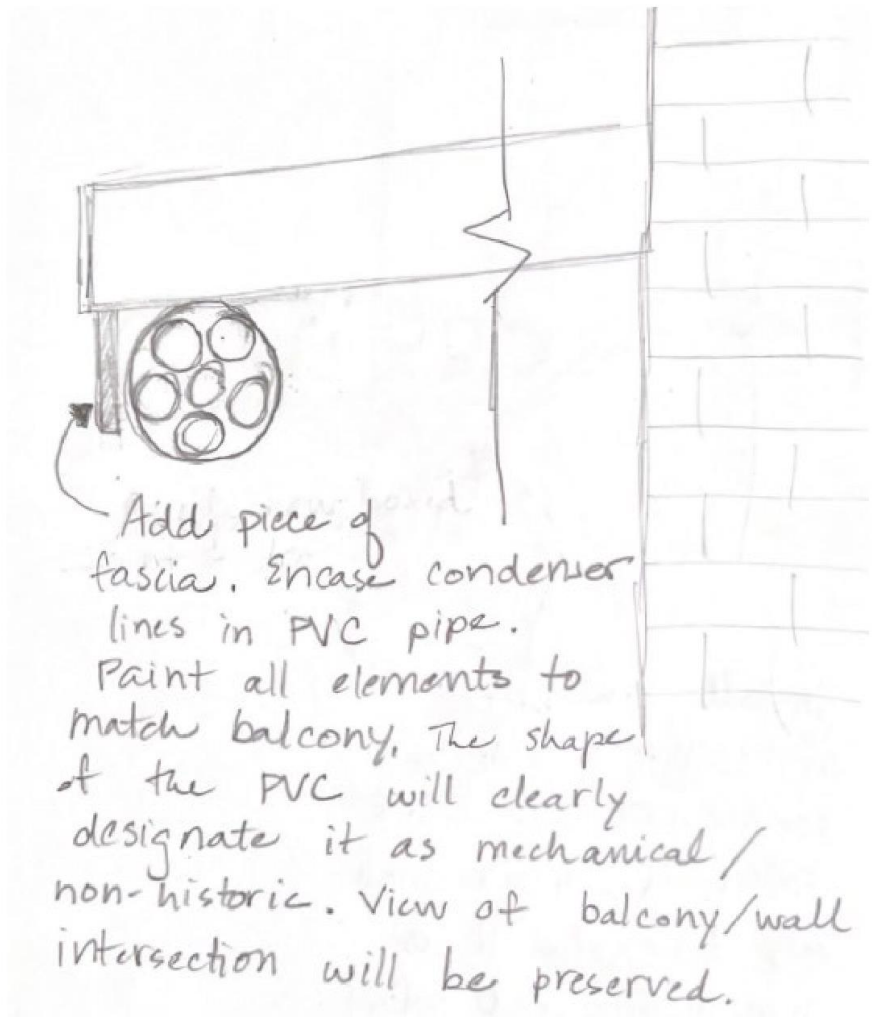 Add piece of
fascia. Encase condenser
lines in PVC pipe.
Paint all elements to
match balcony. The shape
of the PVC will clearly
designate it as mechanical/
non-historic. View of balcony/wall
intersection will be preserved.